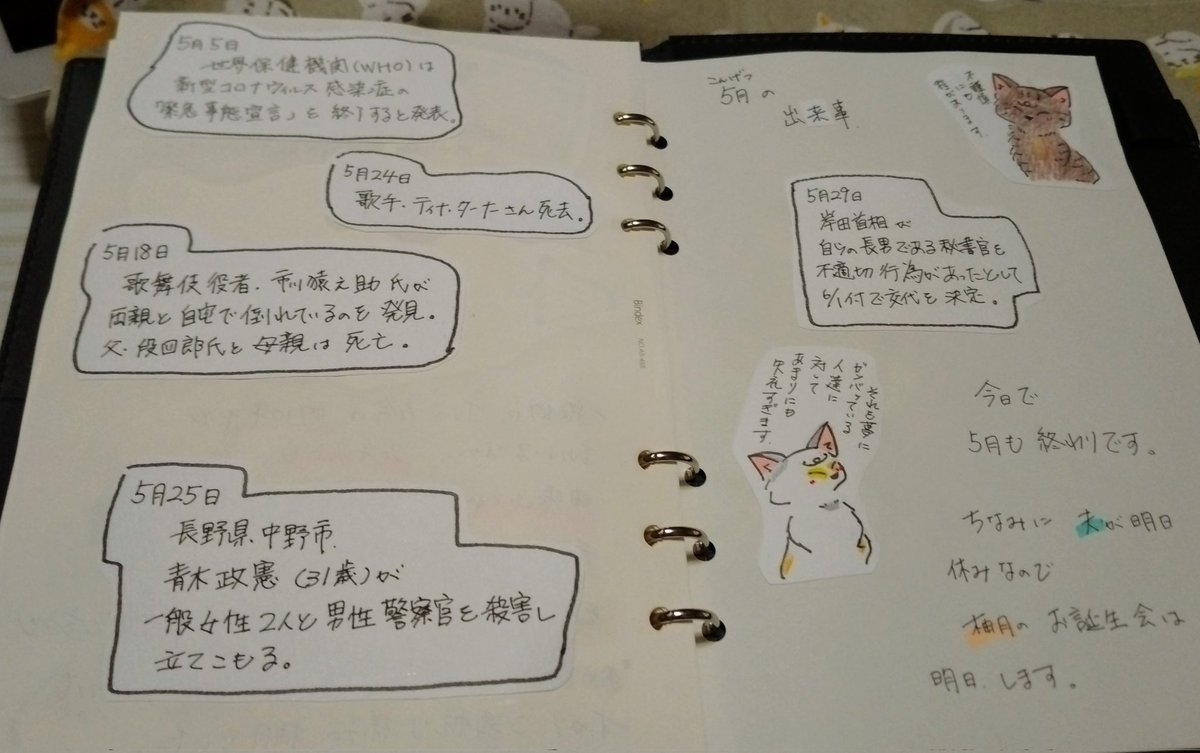 5月5日
世界保健機関(WHO)は
新型コロナウィルス感染症の
「緊急事態宣言」を終了すると発表。
5月24日
歌手・ティナ・ターナーさん死去。
5月18日
歌舞伎役者・市川猿之助氏が
両親と自宅で倒れているのを発見。
父・段四郎氏と母親は死亡。
5月25日
長野県中野市
青木政憲(31歳)が
一般女性2人と男性警察官を殺害し
立てこもる。
こんげつ
5月の
出来事
5月29日
岸田首相が
自分の長男である秘書官を
不適切行為があったとして
6/1付で交代を決定。
それも夢に
ガンバッている
人達に
対して
あまりにも
失礼すぎます。
今日で
5月も終わりです。
ちなみに夫が明日
休みなので
柚月のお誕生会は
明日します。
Bindex